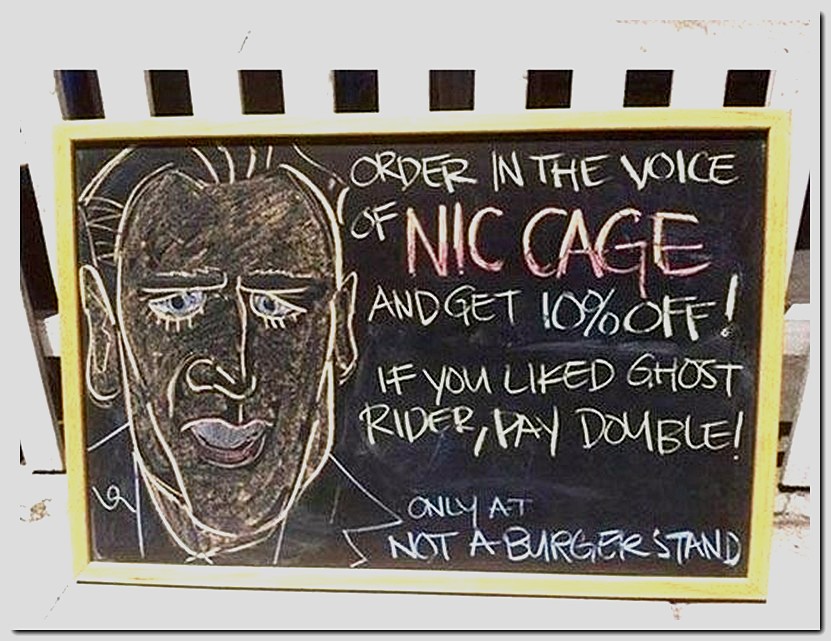 ORDER IN THE VOICE
OF NIC CAGE
AND GET 10% OFF!
IF YOU LIKED GHOST
RIDER, PAY DOUBLE!
ONLY AT
NOT A BURGER STAND